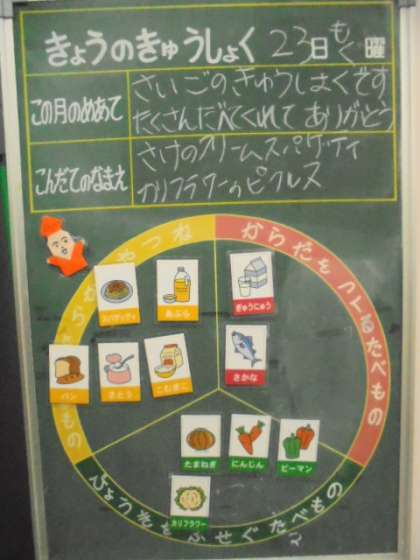 きょうのきゅうしょく 23日 もく 曜
この月のめあて
さいごのきゅうしょくです
たくさんたべてくれて ありがとう
こんだてのなまえ
さけのクリームスパゲティ
カリフラワーのピクルス
ちからや ねつ
になるたべもの
からだをつくるたべもの
スパゲッティ
あぶら
ぎゅうにゅう
さかな
パン
さとう
こむぎこ
たまねぎ
にんじん
ピーマン
カリフラワー
びょうきをふせぐたべもの